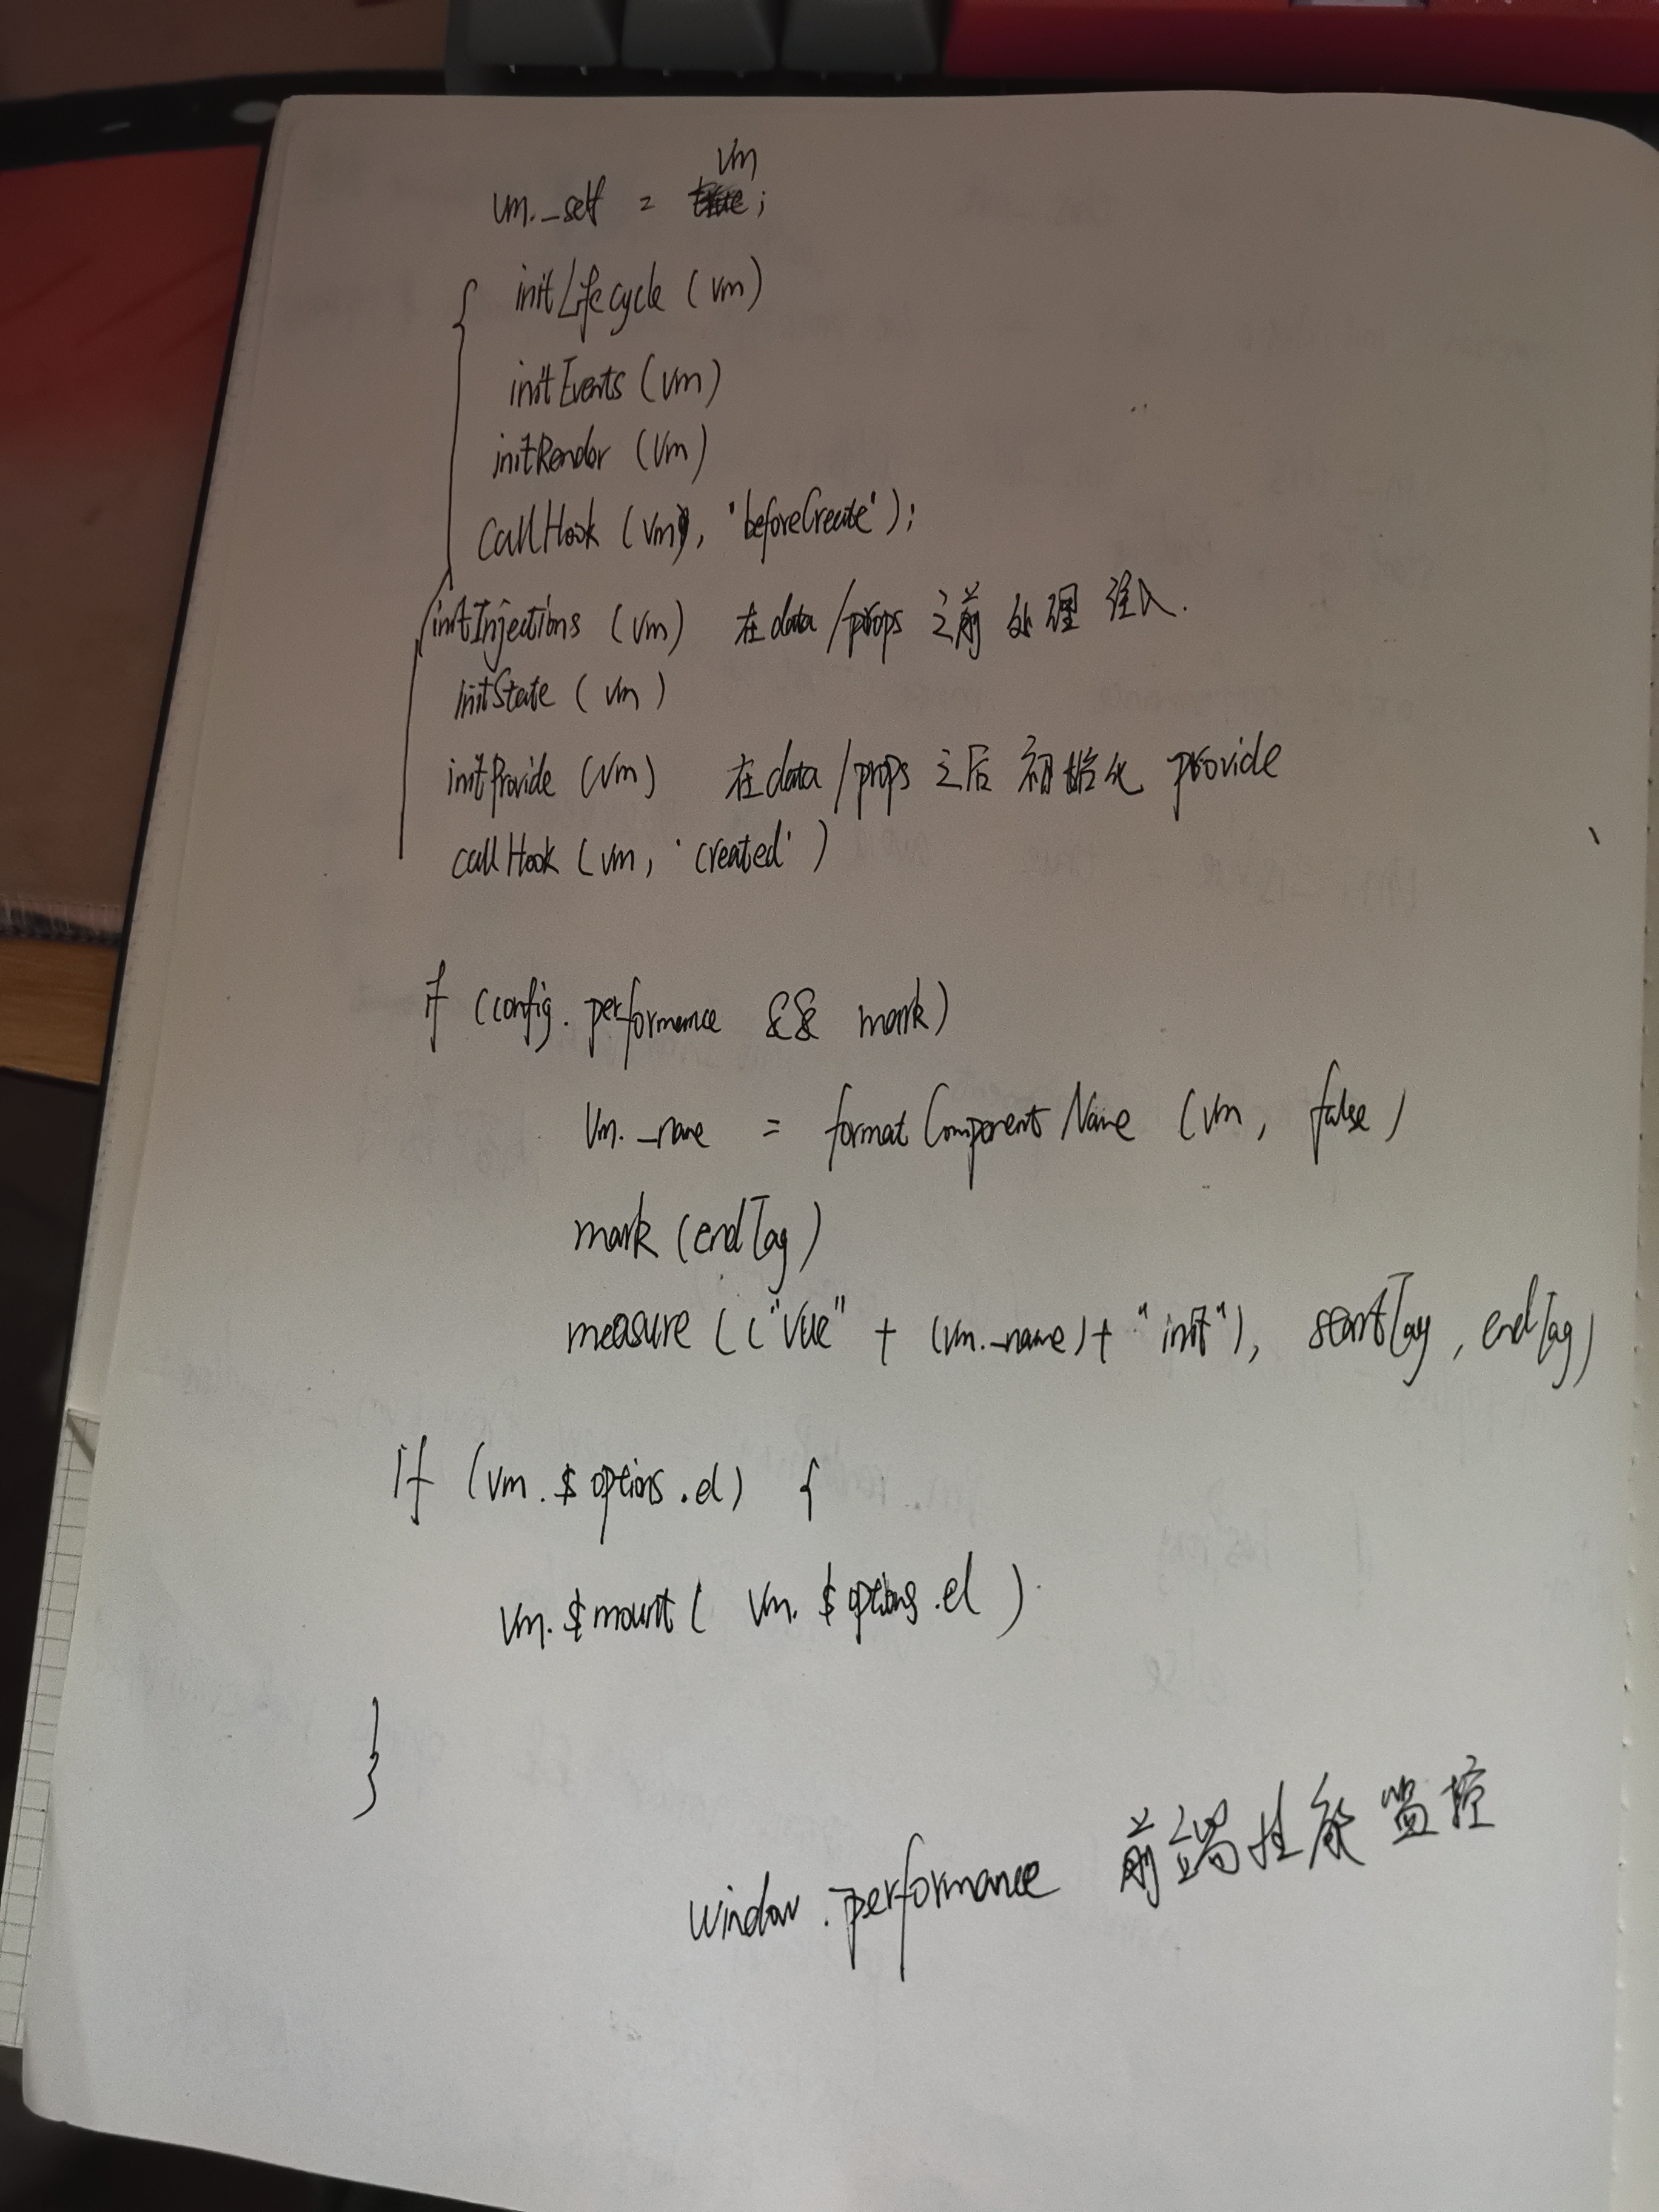 vm._self = vm;
initLifecycle (vm)
initEvents (vm)
initRender (vm)
callHook (vm, 'beforeCreate');
initInjections (vm) 在data/props 之前 处理 注入.
initState (vm)
initProvide (vm) 在data/props 之后 初始化 provide
callHook (vm, 'created')
if (config.performance && mark)
vm._name = formatComponentName (vm, false)
mark (endTag)
measure (("Vue" + (vm._name)+ "init"), startTag, endTag)
if (vm.$options.el) {
vm.$mount( vm.$options.el ).
}
window.performance 前端性能监控